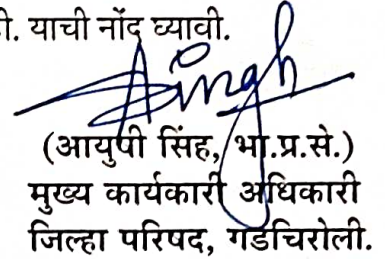 ी. याची नोंद घ्यावी.
Singh
(आयुषी सिंह, भा.प्र.से.)
मुख्य कार्यकारी अधिकारी
जिल्हा परिषद, गडचिरोली.